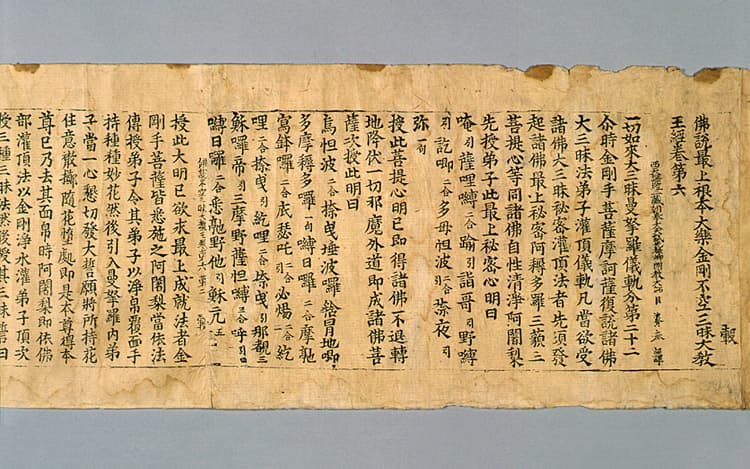 佛說最上根本大樂金剛不空三昧大教
王經卷第六 轂
一切如來大三昧曼拏羅儀軌分第二十二
尒時金剛手菩薩摩訶薩復說諸佛
大三昧法弟子灌頂儀軌凡當欲受
諸佛大三昧秘密灌頂法者先須發
起諸佛最上秘密阿耨多羅三藐三
菩提心等同諸佛自性清淨阿闍梨
先授弟子此最上秘密心明曰
唵 引 薩哩嚩 二合 踰 引 詣哥 引 野嚩
引 訖卿 二合 多毋怛波 引 捺夜 引
弥 一句
授此菩提心明已即得諸佛不退轉
地降伏一切邪魔外道即成諸佛菩
薩次授此明曰
烏怛波 二合 捺曳埵波囉 捨冒月地卿
多摩耨多囉 一句 嚩日囉 二合 摩
窩鉢囉 二合 底瑟吒 二合 必惕 二合 訖
哩 二合 捺曳 引 訖哩 二合 捺曳 引 那覩 三
穌囉帝 引 三摩野薩怛嚩 三合 呼 引 四
嚩日囉 二合 悉 野他 引 穌元 五
授此大明已欲求最上成就法者金
剛手菩薩皆悉施之阿闍梨當依法
傳授弟子令其弟子以淨帛覆面手
持種種妙花然後引入曼拏羅內弟
子當一心懇切發大誓願將所持花
住意散擲隨花墮處即是本尊得本
尊已乃去其面帛時阿闍梨即依佛
部灌頂法以金剛淨水灌弟子頂次
授三種三昧法然後受其三昧誓曰